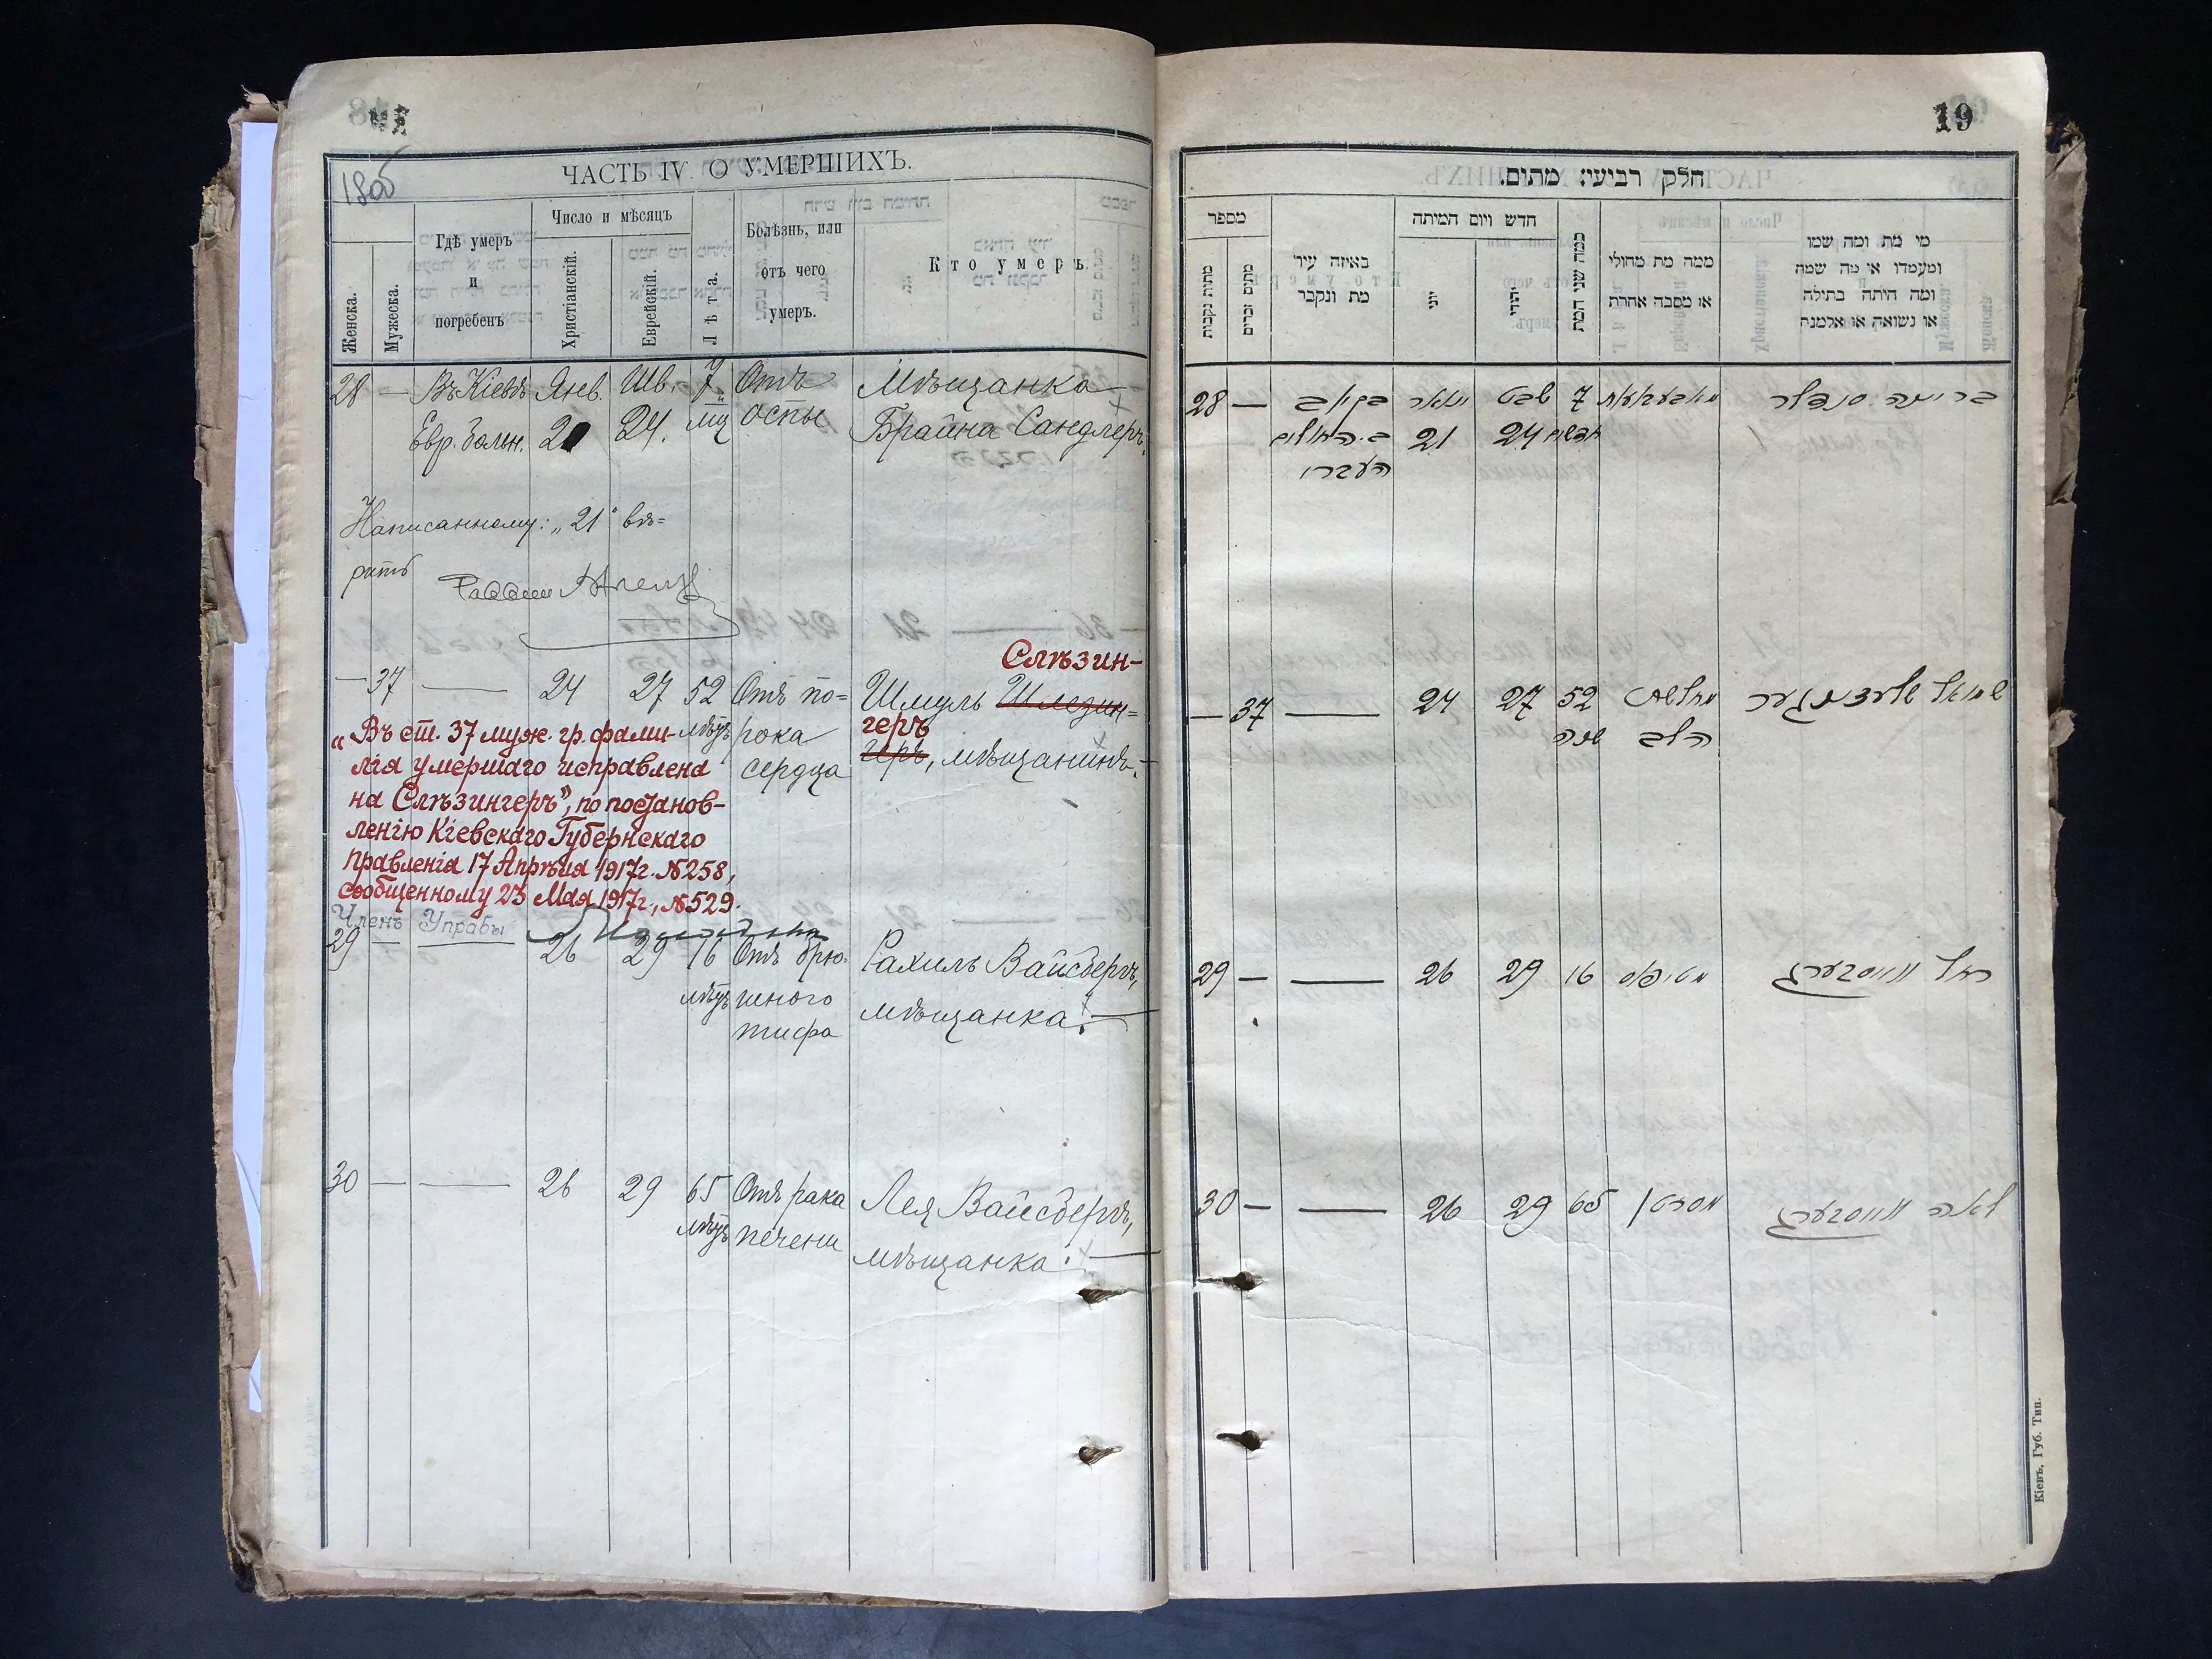 ЧАСТЬ IV. О УМЕРШИХЪ.
Женска.
Мужеска.
Гдѣ умеръ
и
погребенъ
Число и мѣсяцъ
Христіанскій.
Еврейскій.
Лѣта.
Болѣзнь, или
отъ чего
умеръ.
Кто умеръ.
28 — Въ Кіевѣ Янв. Шв. 7 Отъ Мѣщанка
Евр. болн. 24. мц оспы Брайна Сандлеръ
Написанному: „21" вѣ=
рить
Раввин
Слѣзин-
— 37 — 24 27 52 Отъ по= Шмуль Шлезин=
геръ
лѣтъ рока геръ, мѣщанинъ.
сердца
„Въ ст. 37 муж. гр. фами-
лія умершаго исправлена
на Слѣзингеръ", по постанов-
ленію Кіевскаго Губернскаго
Правленія 17 Апрѣля 1917г. №258,
сообщенному 23 Мая 1917г., №529.
Членъ Управы
29 — — 26 29 16 Отъ брю- Рахиль Вайсбергъ,
лѣтъ шного мѣщанка.
тифа
30 — — 26 29 65 Отъ рака Лея Вайсбергъ,
лѣтъ печени мѣщанка.
19
חלק רביעי מתים.
מספר
מתות נקבות
מתים זכרים
באיזה עיר
מת ונקבר
חדש ויום המיתה
יוני
יהודי
כמה שני המת
ממה מת מחולי
או מסבה אחרת
מי מת ומה שמו
ומעמדו או מה שמה
ומה היתה בתולה
או נשואה או אלמנה
28 — בקיאב ינואר שבט 7
21 24 חדשים
העברי
בריינה סנדלר
— 37 — 24 27 52 מחלת שמואל שלעזינגער
שנה הלב
29 — — 26 29 16 מטיפוס רחל ווייסבערג
30 — — 26 29 65 מסרטן לאה ווייסבערג
Кіевъ, Губ. Тип.